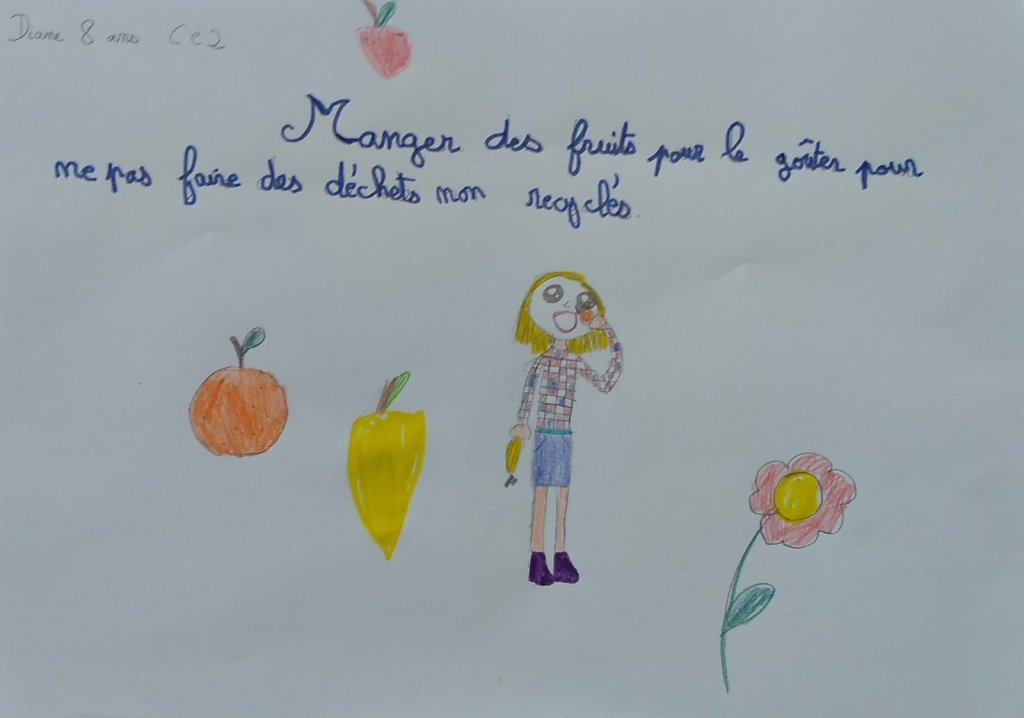 Diane 8 ans Ce2
Manger des fruits pour le goûter pour
ne pas faire des déchets non recyclés.